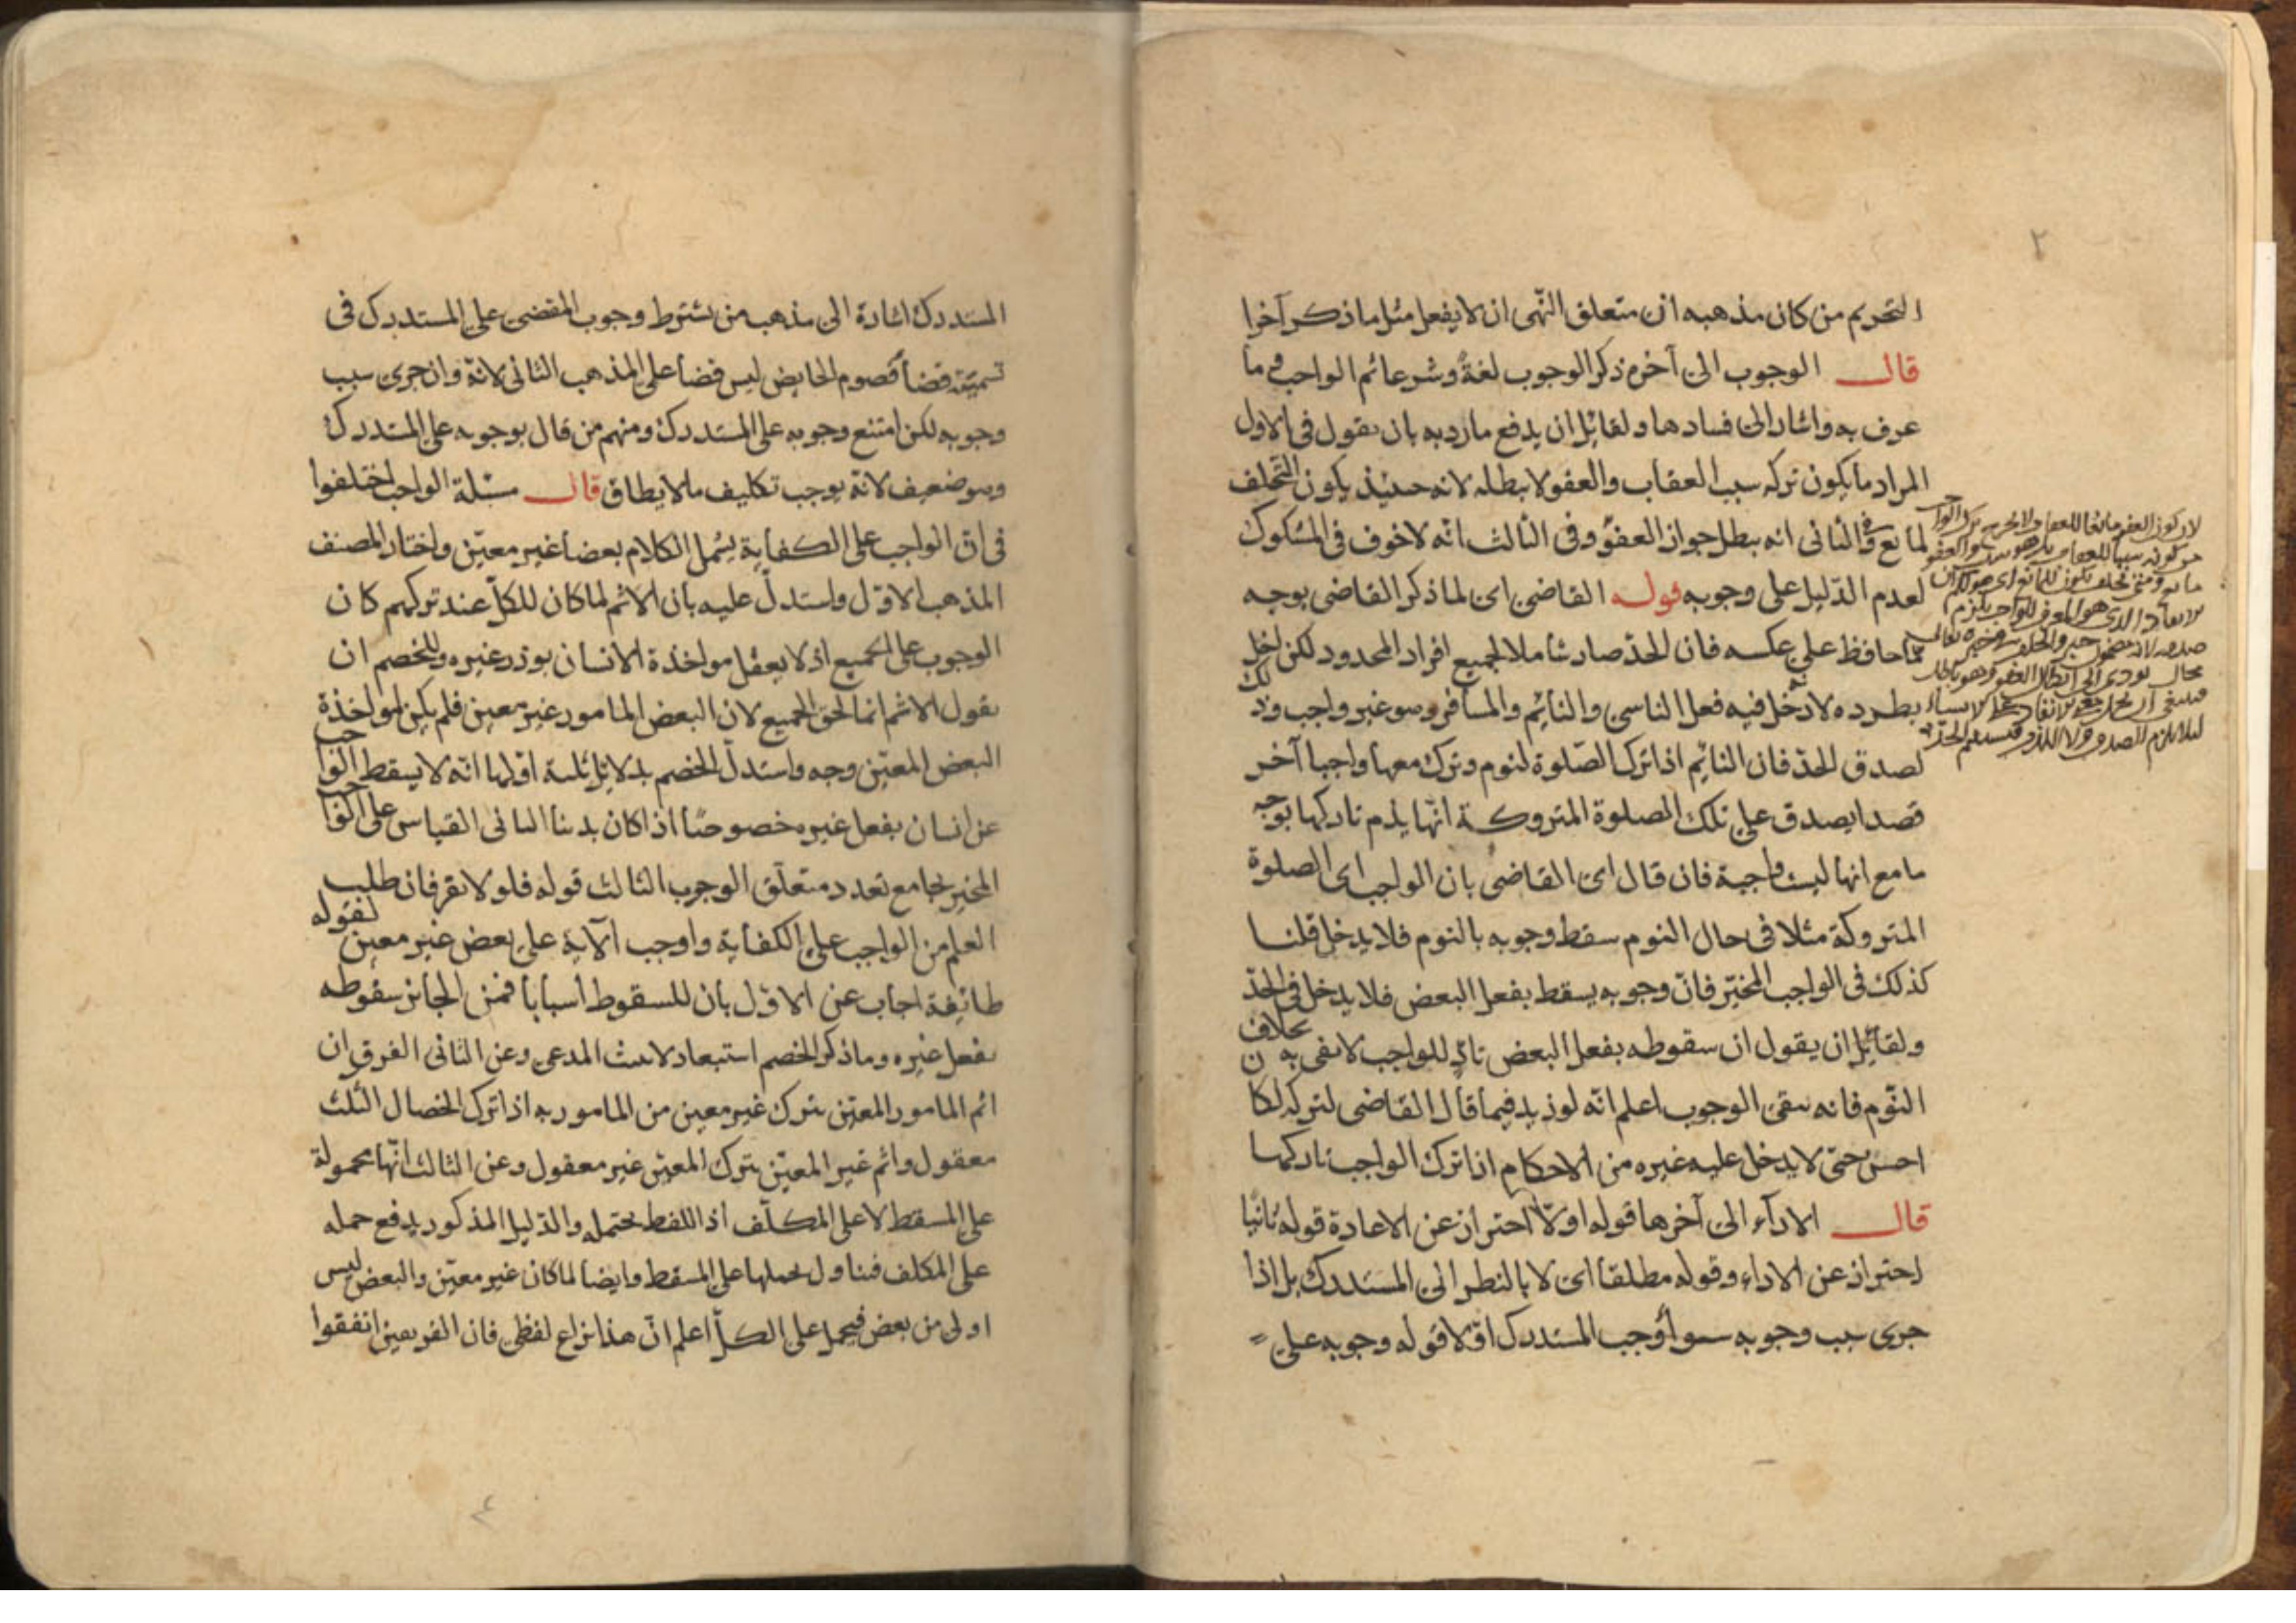 ٢
التحريم من كان مذهبه ان متعلق النهى ان لا يفعل مثل ما ذكر آخرا
قال الوجوب الى آخره ذكر الوجوب لغةً وشرعا ثم الواجب وما
عرف به واشار الى فسادها ولقائل ان يدفع ما زد به بان يقول فى الاول
المراد ما يكون تركه سبب العقاب والعفو لا يبطله لانه حينئذ يكون التخلف
لمانع وفى الثانى انه يبطل جواز العفو وفى الثالث انه لا خوف فى المشكوك
لعدم الدّليل على وجوبه قوله القاضى اى لما ذكر القاضى بوجه
مّا حافظ على عكسه فان الحدّ صار شاملا لجميع افراد المحدود لكن اخل
بطرده لا دخل فيه فعل الناسى والنائم والمسافر وهو غير واجب وذلك
لصدق الحدّ فان النائم اذا ترك الصّلوة لنوم وترك معها واجبا آخر
قصدا يصدق على تلك الصلوة المتروكة انّها يذم تاركها بوجه
ما مع انها ليست واجبة فان قال اى القاضى بان الواجب اى الصلوة
المتروكة مثلا فى حال النوم سقط وجوبه بالنوم فلا يدخل قلنا
كذلك فى الواجب المخيّر فانّ وجوبه يسقط بفعل البعض فلا يدخل فى الحدّ
ولقائل ان يقول ان سقوطه بفعل البعض للواجب بخلاف
النّوم فانه الوجوب اعلم انّه لو زيد فيما قال القاضى لتركه لكان
احسن حتى لا يدخل عليه غيره من الاحكام اذا ترك الواجب تاركها
قال الادآء الى آخرها قوله اولاً احتراز عن الاعادة قوله ثانيا
احتراز عن الاداء وقوله مطلقا اى لا بالنظر الى المستدرك بل اذا
جرى سبب وجوبه سوأ وجب المستدرك اولا قوله وجوبه على
المستدرك اشارة الى مذهب من يشترط وجوب المقضى على المستدرك فى
تسميته قضأ كصوم الحايض ليس قضأ على المذهب الثانى لانّه وان جرى سبب
وجوبه لكن امتنع وجوبه على المستدرك ومنهم من قال بوجوبه على المستدرك
وهو ضعيف لانّه يوجب تكليف ما لا يطاق قال مسئلة الواجب اختلفوا
فى انّ الواجب على الكفاية يشمل الكلام بعضا غير معيّن واختار المصنف
المذهب الاوّل واستدلّ عليه بان الاثم لما كان للكلّ عند تركهم كان
الوجوب على الجميع اذ لا يعقل مواخذة الانسان بوزر غيره وللخصم ان
يقول الاثم انما لحق الجميع لان البعض المامور غير معين فلم يكن لمواخذة
البعض المعيّن وجه واستدلّ الخصم بدلائل ثلثة اولها انّه لا يسقط الواجب
عن انسان بفعل غيره خصوصًا اذا كان بدنيا الثانى القياس على الواجب
المخير بجامع تعدد متعلّق الوجوب الثالث قوله فلولا نفر فان طلب
العلم من الواجب على الكفاية واوجب الآية على بعض غير معين لقوله
طائفة اجاب عن الاوّل بان للسقوط أسبابا فمن الجائز سقوطه
بفعل غيره وما ذكر الخصم استبعاد لا يثبت المدعى وعن الثانى الفرق ان
اثم المامور المعيّن بترك غير معين من المامور به اذا ترك الخصال الثلث
معقول واثم غير المعيّن بترك المعيّن غير معقول وعن الثالث انّها محمولة
على المسقط لا على المكلّف اذ اللفظ يحتمله والدّليل المذكور يدفع حمله
على المكلف فيناول بحملها على المسقط وايضا لما كان غير معيّن والبعض ليس
اولى من بعض فيحمل على الكلّ اعلم انّ هذا نزاع لفظى فان الفريقين اتفقوا